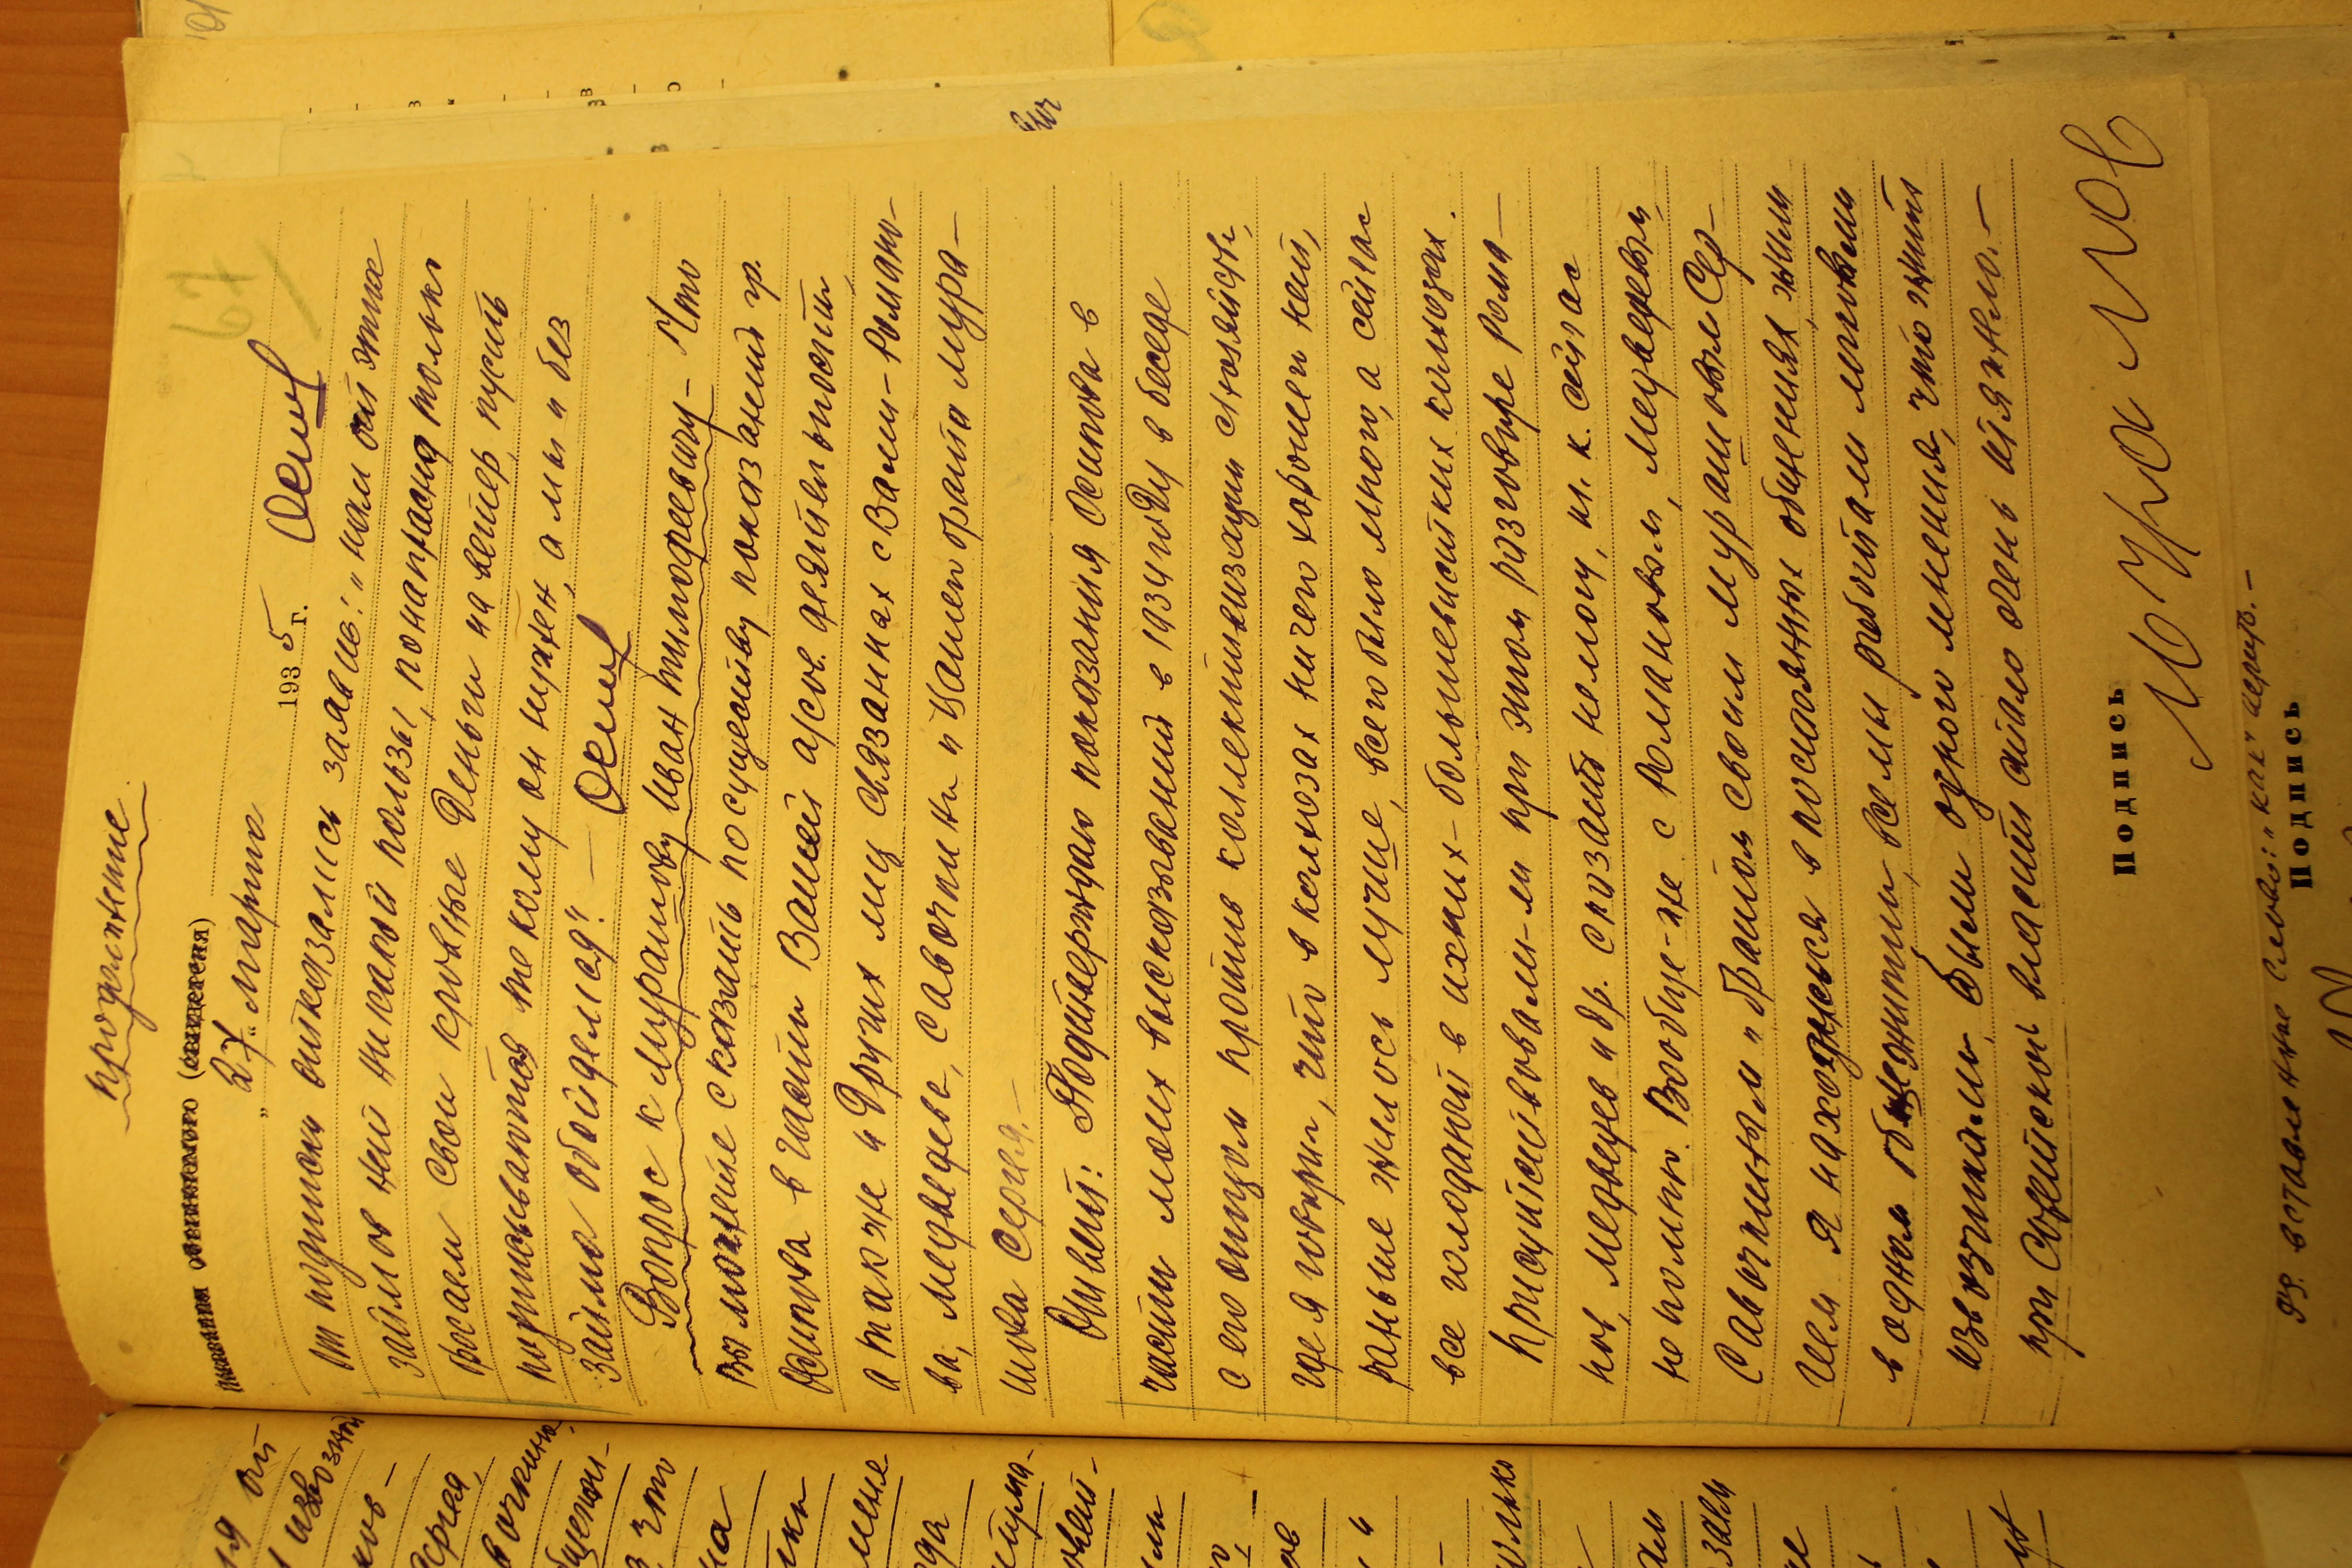 продолжение
показания обвиняемого (свидетеля)
„27“ марта 1935 г. Осип
от подписки отказались заявив: „нам от этих
займов нет никакой пользы, понапрасну только
бросаем свои кровные деньги на ветер, пусть
подписываются те кому он нужен, а мы и без
займа обойдемся“. — Осип
Вопрос к Мурашову Иван Тимофеевичу — Что
вы можете сказать по существу показаний гр.
Осипова в части Вашей а/сов. деятельности
а так же и других лиц связанных с Вами — Романо-
ва, Медведева, Савочкина и Вашего брата Мура-
шова Сергея. —
Ответ: Подтверждаю показания Осипова в
части моих высказываний в 1934 году в беседе
с его отцом против коллективизации с/хозяйства,
где я говорил, что в колхозах ничего хорошего нет,
раньше жилось лучше, всего было много, а сейчас
все голодают в ихних — большевистских колхозах.
Присутствовали-ли при этом разговоре Рома-
нов, Медведев и др. сказать не могу, т. к. сейчас
не помню. Вообще-же с Романовым, Медведевым,
Савочкиным и братом своим Мурашовым Сер-
геем я находился в постоянных общениях, жили
в одном общежитии, все мы работали ломовыми
извозчиками, были одного мнения, что жить
при Советской власти стало очень тяжело. —
Подпись Мурашов
вставленные слово: „как“ черв. —
Подпись